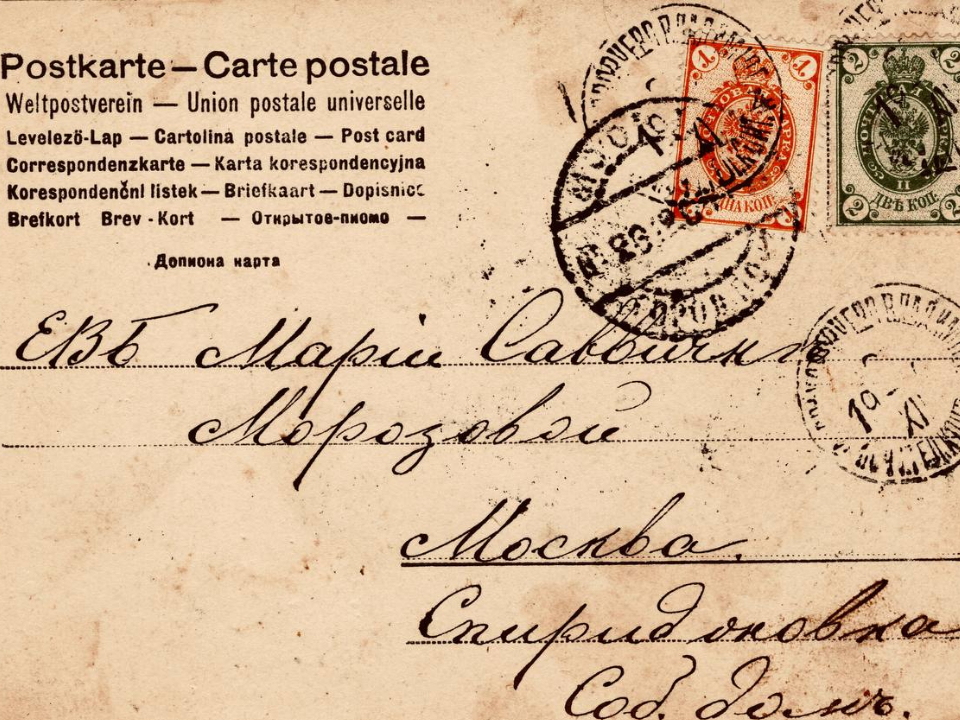 Postkarte — Carte postale
Weltpostverein — Union postale universelle
Levelező-Lap — Cartolina postale — Post card
Correspondenzkarte — Karta korespondencyjna
Korespondenční listek — Briefkaart — Dopisnice
Brefkort Brev-Kort — Открытое-письмо —
Допиона карта
1 1
ДНА КОП.
2 2
II
2 ДВѢ КОП. 2
19 XI
ЕВБ Маріи Саввичнѣ
Морозовой
Москва.
Спиридоновка
Соб. домъ.